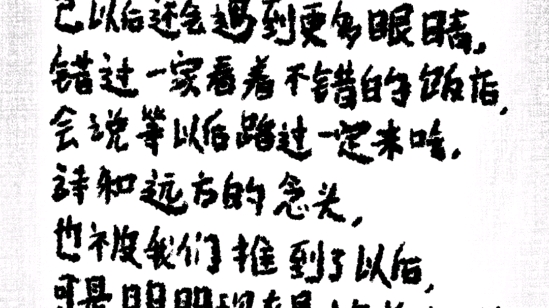 己以后还会遇到更多眼睛,
错过一家看着不错的饭店,
会说等以后路过一定来
詩和远方的念头,
也被我们推到了以后,
可是明明现在是